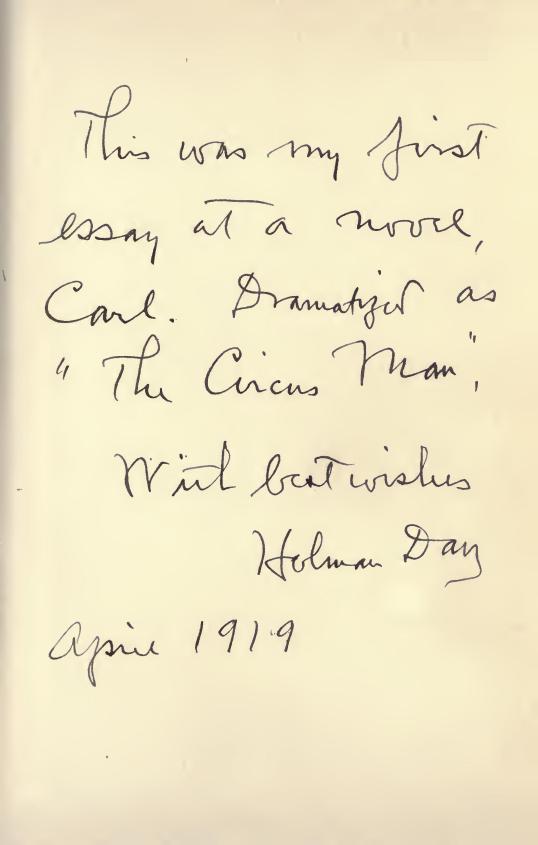 This was my first
essay at a novel,
Carl. Dramatized as
"The Circus Man",
With best wishes
Holman Day
April 1919